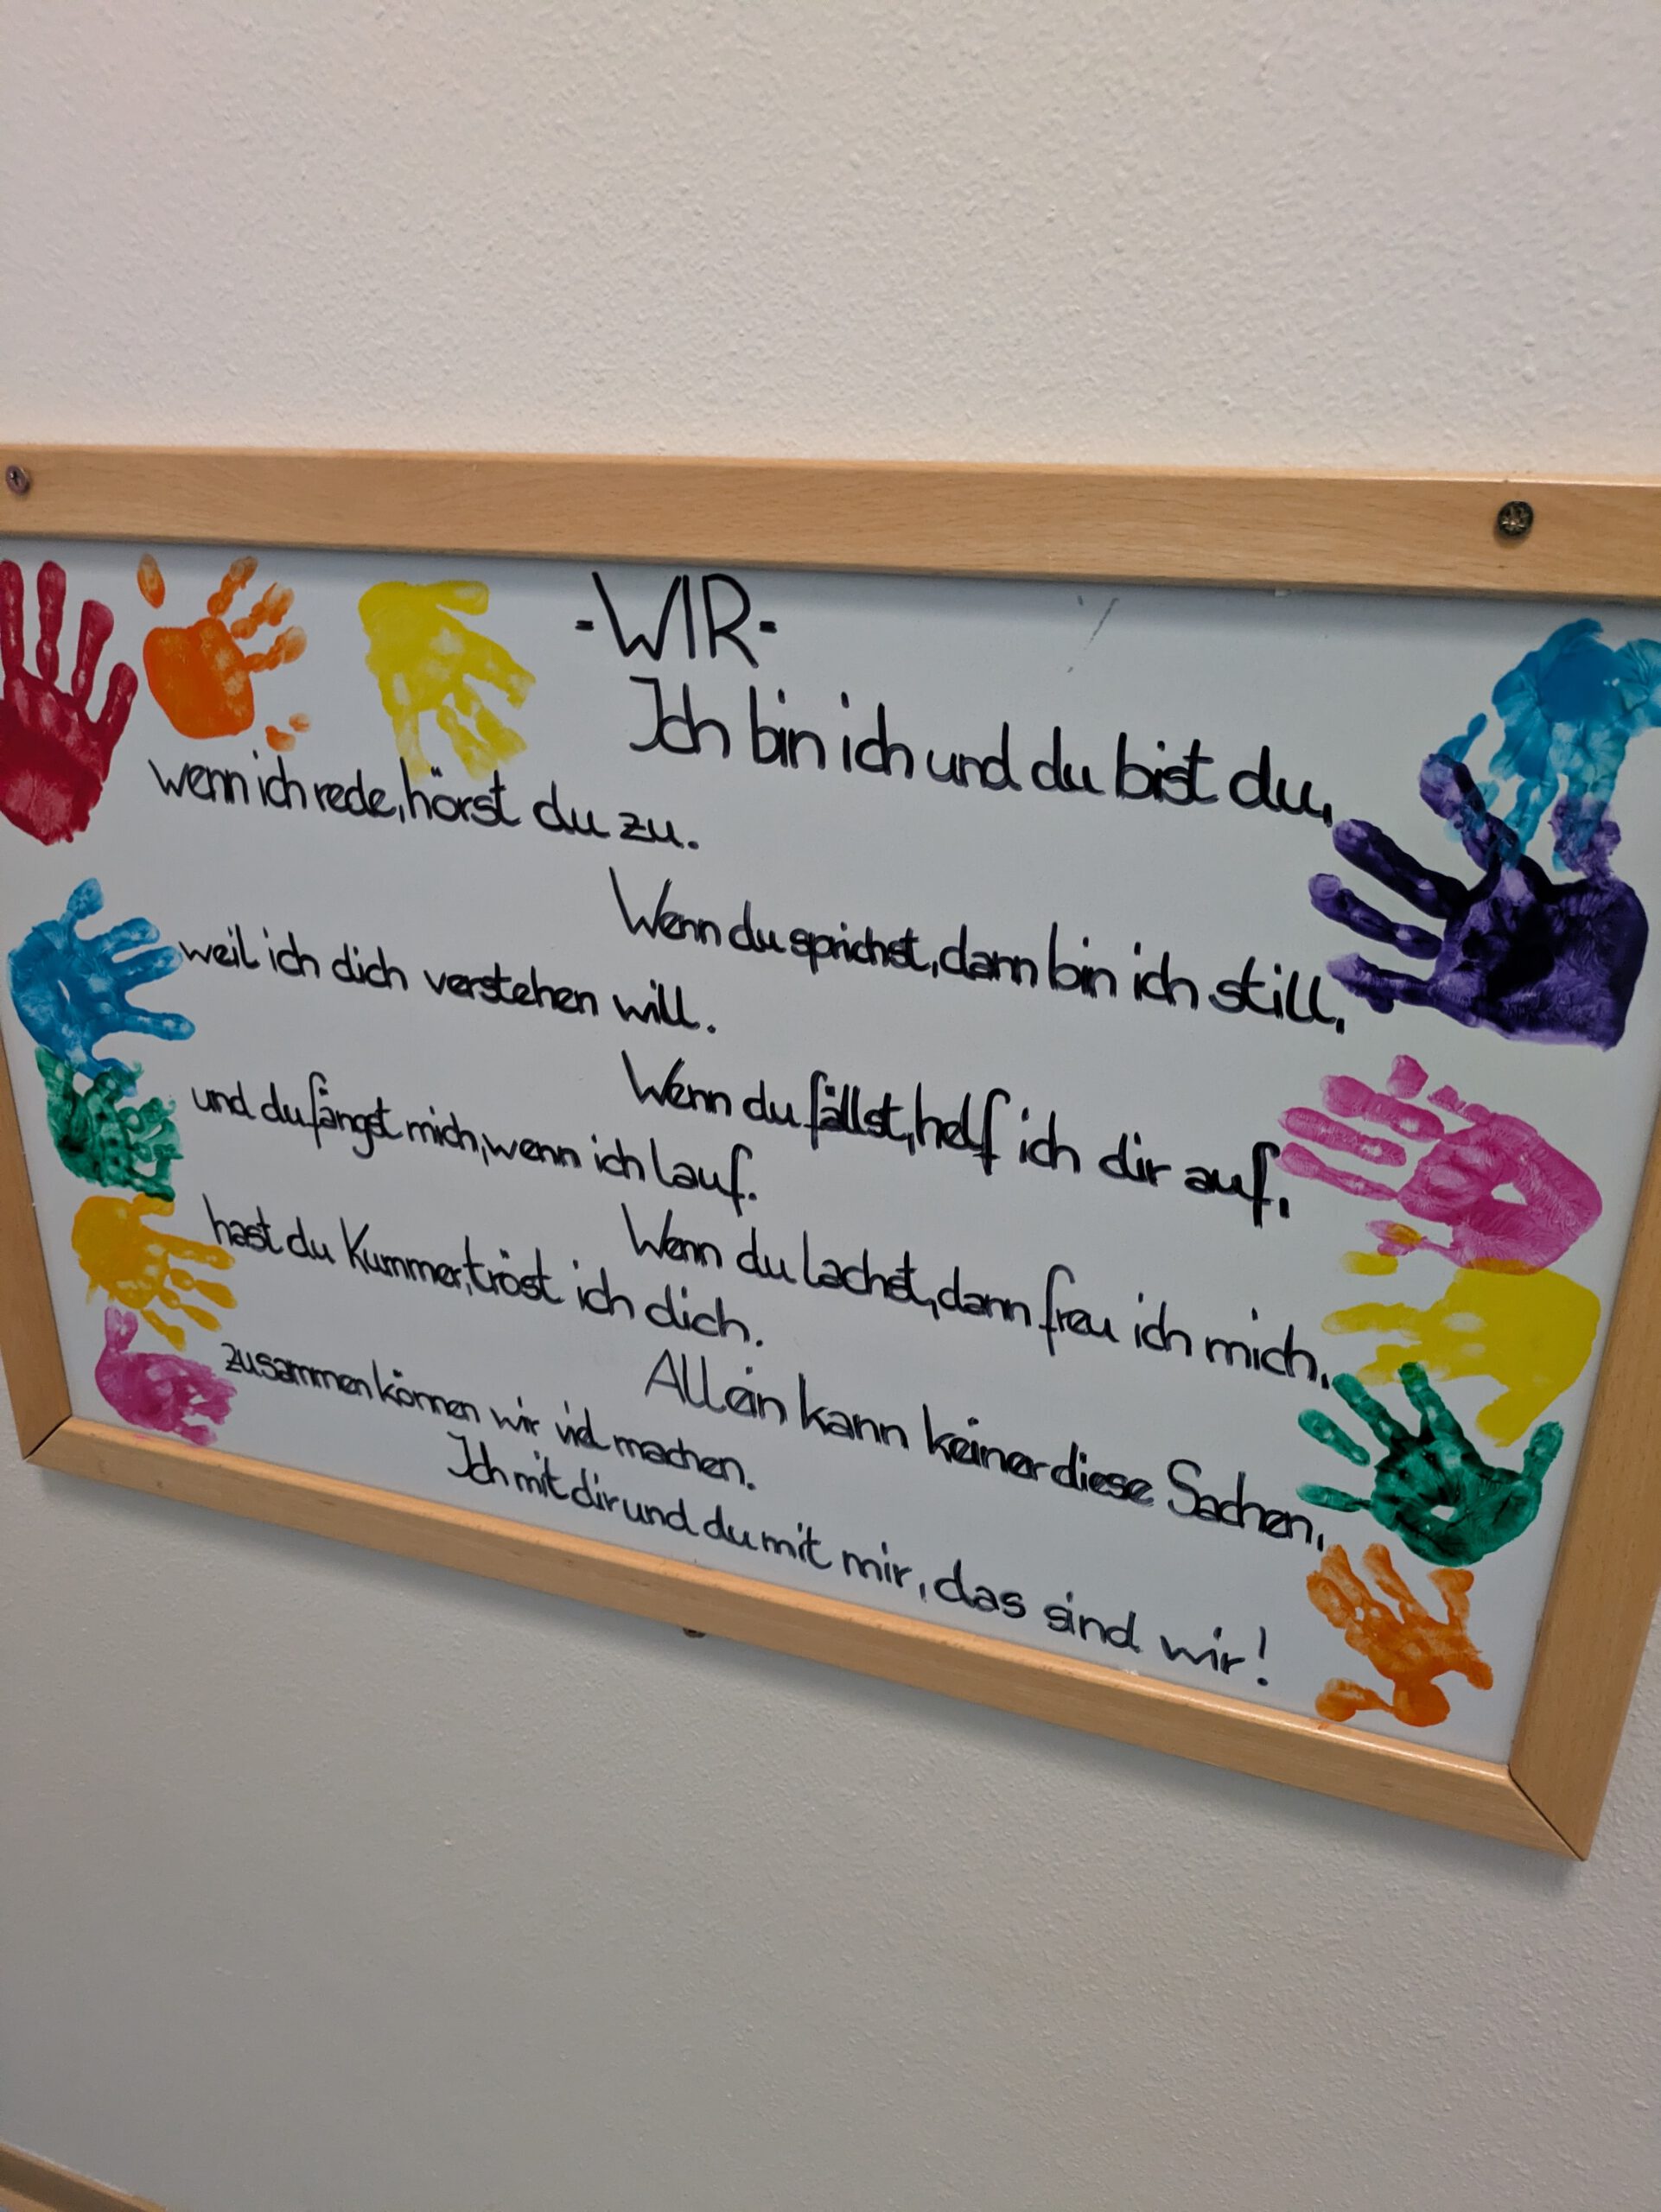 -WIR-
Ich bin ich und du bist du,
wenn ich rede, hörst du zu.
Wenn du sprichst, dann bin ich still,
weil ich dich verstehen will.
Wenn du fällst, helf ich dir auf,
und du fängst mich, wenn ich lauf.
Wenn du lachst, dann freu ich mich,
hast du Kummer, tröst ich dich.
Allein kann keiner diese Sachen,
zusammen können wir viel machen.
Ich mit dir und du mit mir, das sind wir!